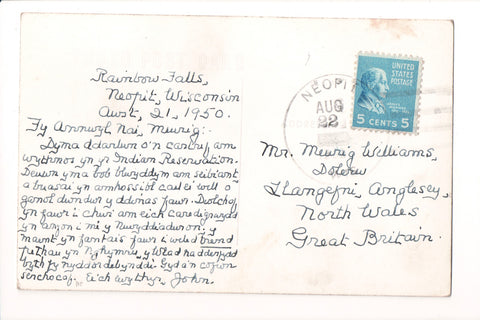 Rainbow Falls,
Neopit, Wisconsin
Awst, 21, 1950.
Fy Annwyl Nai, Meurig:-
Dyma ddarlun o'n cartref am
wythnos yn yr Indian Reservation.
Deuwn yma bob blwyddyn am seibiant
a buasai yn amhossibl cael ei well o
ganol dwndwr y ddinas fawr. Diolch
yn fawr i chwi am eich caredigrwydd
yn anfon i mi y Newyddiaduron. y
maent yn fantais fawr i weled
pethau yn Nghymru, y Wlad na dderfydd
byth fy nyddordeb ynddi. Gyda'n cofion
serchocaf. Eich ewythr, John.
NEOPIT
AUG
22
UNITED
STATES
POSTAGE
5 CENTS 5
Mr. Meurig Williams,
Llangefni, Anglesey,
North Wales
Great Britain.